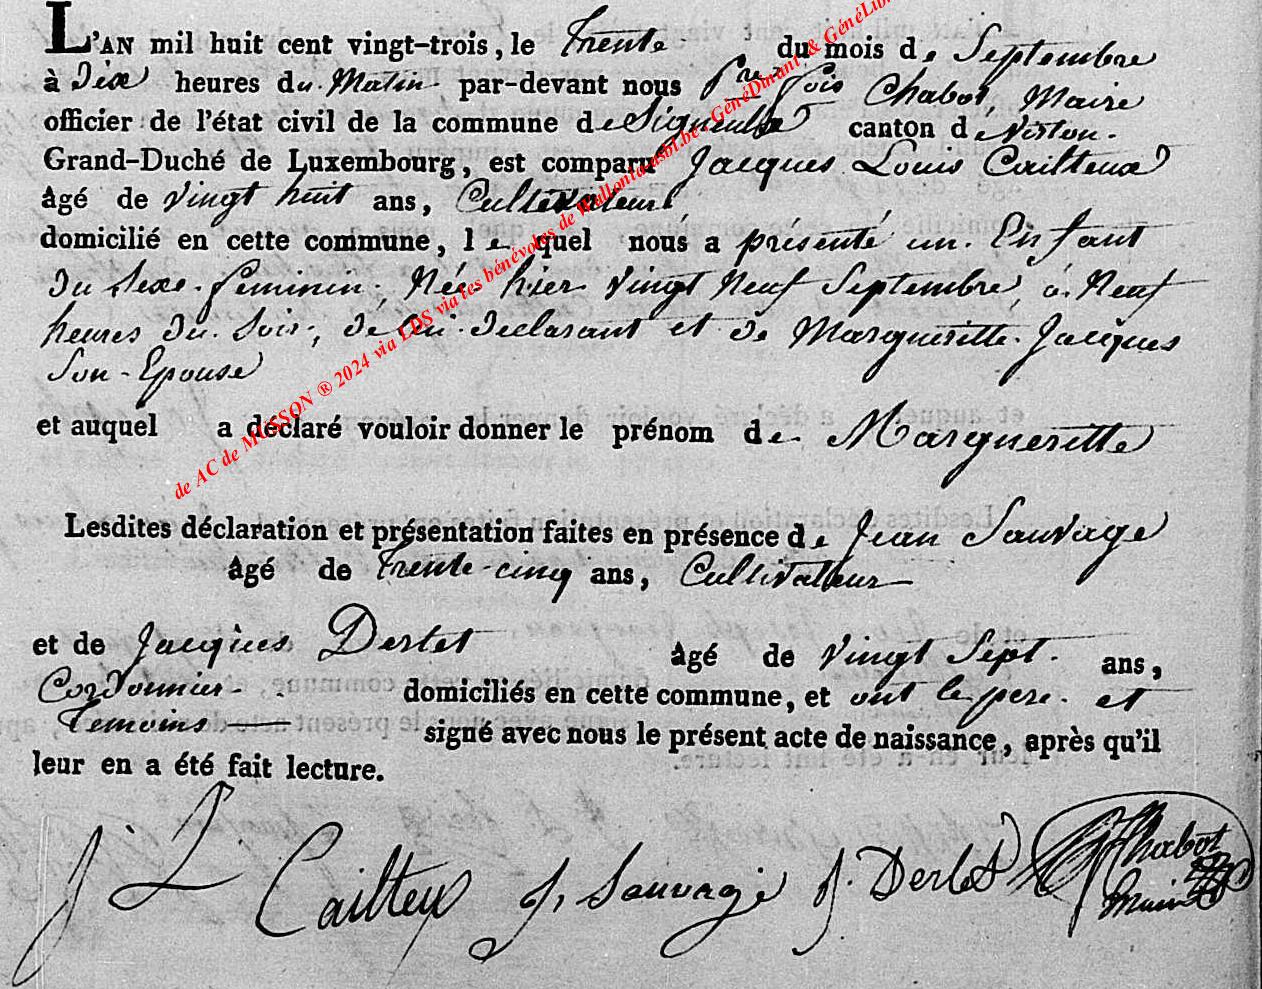 L'AN mil huit cent vingt-trois, le Trente du mois de Septembre
à Dix heures du Matin par-devant nous fçois Chabot, Maire
officier de l'état civil de la commune de Signeulx canton de Virton.
Grand-Duché de Luxembourg, est comparu Jacques Louis Cailteux
âgé de vingt huit ans, Cultivateur
domicilié en cette commune, le quel nous a présenté un Enfant
du sexe feminin, Née hier vingt Neuf Septembre, à Neuf
heures du Soir, de lui declarant et de Margueritte Jacques
Son Epouse
et auquel a déclaré vouloir donner le prénom de Margueritte
Lesdites déclaration et présentation faites en présence de Jean Sauvage
âgé de Trente-cinq ans, Cultivatteur
et de Jacques Derlet âgé de vingt Sept ans,
Cordonnier domiciliés en cette commune, et ont le pere et
Temoins signé avec nous le présent acte de naissance, après qu'il
leur en a été fait lecture.
J L Cailteux J, Sauvage J. Derlet Chabot
Maire
de AC de MUSSON ® 2024 via LDS via les bénévoles de Wallonia asbl.be - GénéDinant & GénéLibr